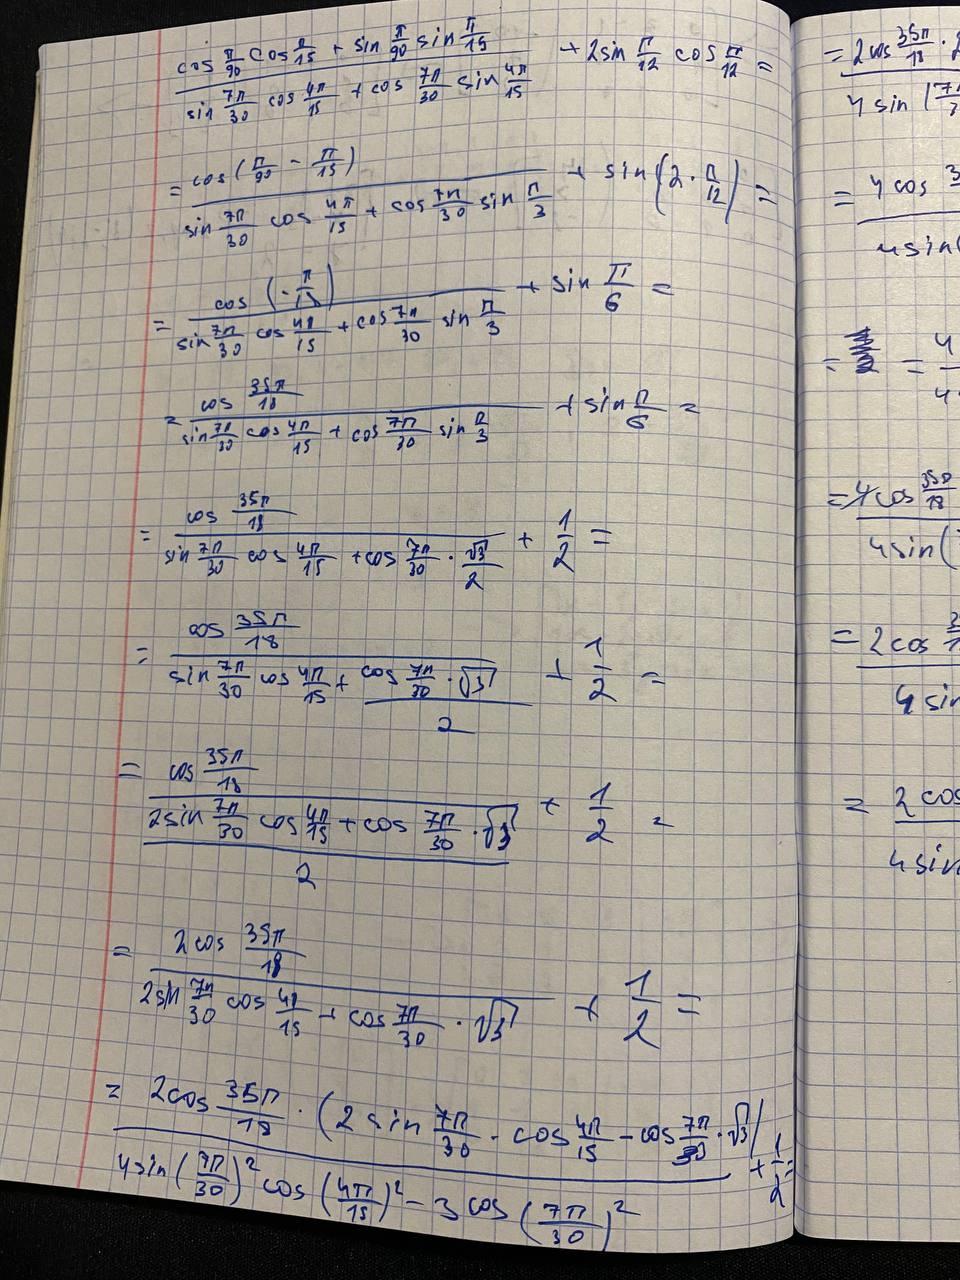 cos π/90 cos π/15 + sin π/90 sin π/15
sin 7π/30 cos 4π/15 + cos 7π/30 sin 4π/15 + 2sin π/12 cos π/12 =
= cos(π/90 - π/15)
sin 7π/30 cos 4π/15 + cos 7π/30 sin π/3 + sin(2·π/12) =
= cos(-π/18)
sin 7π/30 cos 4π/15 + cos 7π/30 sin π/3 + sin π/6 =
= cos 35π/18
sin 7π/30 cos 4π/15 + cos 7π/30 sin π/3 + sin π/6 =
= cos 35π/18
sin 7π/30 cos 4π/15 + cos 7π/30 · √3/2 + 1/2 =
= cos 35π/18
sin 7π/30 cos 4π/15 + cos 7π/30 · √3 + 1/2 =
2
= cos 35π/18
2sin 7π/30 cos 4π/15 + cos 7π/30 · √3 + 1/2 =
2
= 2cos 35π/18
2sin 7π/30 cos 4π/15 + cos 7π/30 · √3 + 1/2 =
= 2cos 35π/18 · (2 sin 7π/30 · cos 4π/15 - cos 7π/30 · √3)
4sin(7π/30)² cos(4π/15)² - 3 cos(7π/30)² + 1/2 =
= 2cos 35π/18 ·
4 sin
= 4 cos
4sin(
= = 4
4
= 4cos 35π/18
4sin(
= 2cos
4 sin
= 2cos
4sin